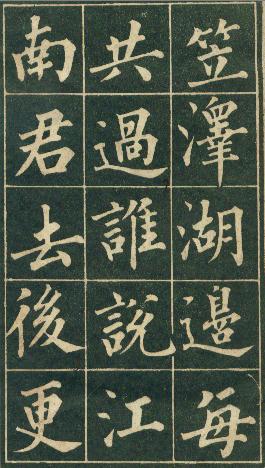 笠澤湖邊每
共過誰説江
南君去後更